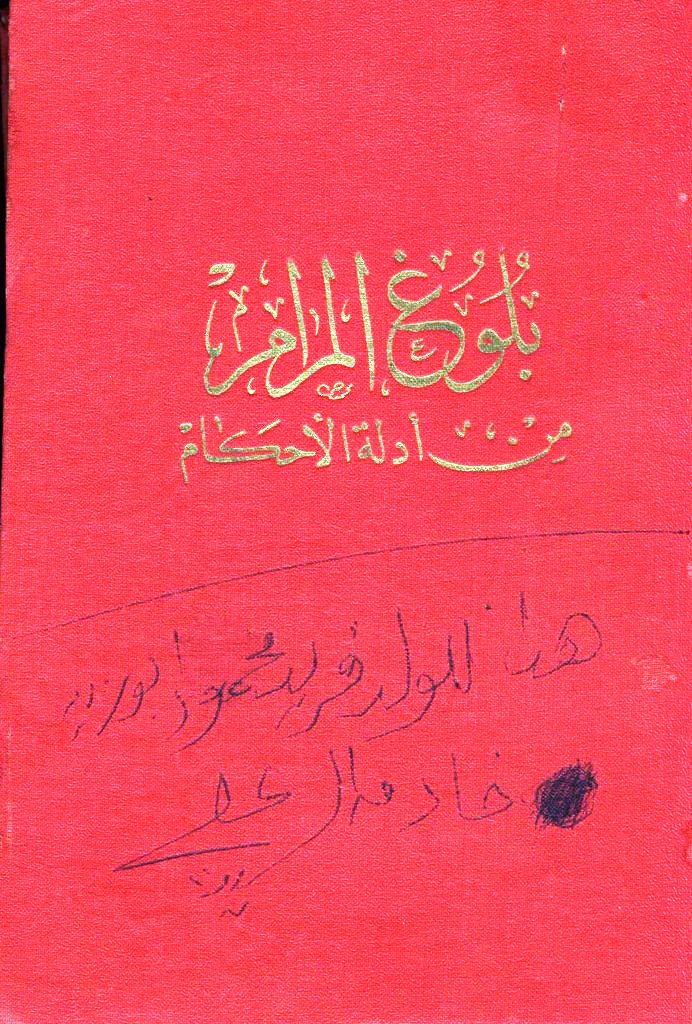 بُلُوغُ المَرَامِ
مِنْ أدلة الأحكام
هذا للولد فريد محمود ابوزيد
خادمه